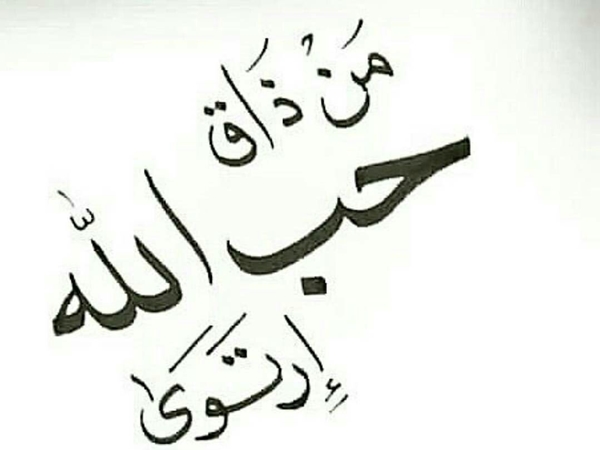 مَنْ ذَاق
حب اللّه
إرتَوَى